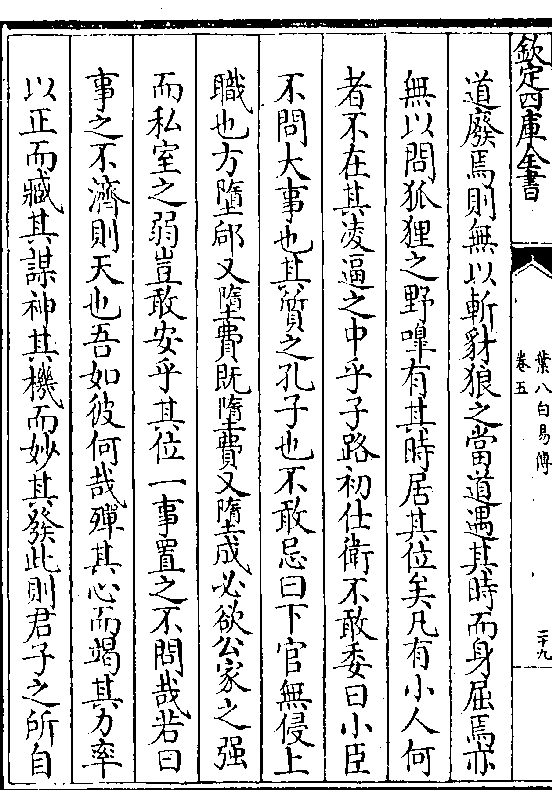 欽定四庫全書
葉八白易傳
卷五
二十九
道廢焉則無以斬豺狼之當道遇其時而身屈焉亦
無以問狐狸之野嘷有其時居其位矣凡有小人何
者不在其凌逼之中乎子路初仕衛不敢委曰小臣
不問大事也其質之孔子也不敢忌曰下官無侵上
職也方墮郈又墮費既墮費又墮成必欲公家之强
而私室之弱豈敢安乎其位一事置之不問哉若曰
事之不濟則天也吾如彼何哉殫其心而竭其力率
以正而臧其謀神其機而妙其發此則君子之所自